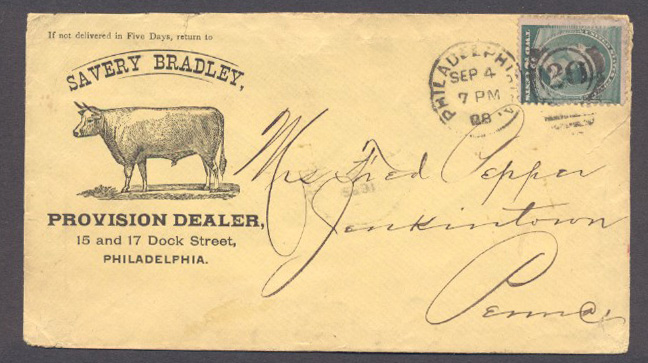 If not delivered in Five Days, return to
SAVERY BRADLEY,
PROVISION DEALER,
15 and 17 Dock Street,
PHILADELPHIA.
PHILADELPHIA
SEP 4
7 PM
88
20
Mrs Fred Pepper
Jenkintown
Penna.